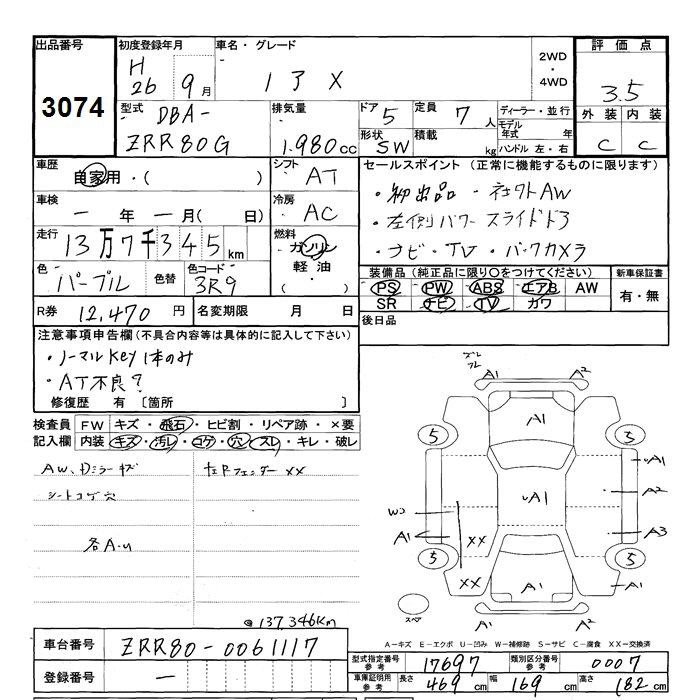 出品番号
3074
初度登録年月
H 26 9月
車名・グレード
13 X
2WD
・
4WD
評価点
3.5
外装 内装
C C
型式
DBA-
ZRR80G
排気量
1.980cc
ドア 5
定員 7人
ディーラー・並行
モデル年式 年
形状 SW
積載 kg
ハンドル 左・右
車歴
自家用・( )
シフト
AT
セールスポイント (正常に機能するものに限ります)
・初出品 ・社外AW
・左側パワースライドドア
・ナビ・TV・バックカメラ
車検
一年一月( 日)
冷房
AC
走行
13万7千345km
燃料
ガソリン
軽油・
( )
色
パープル
色替
色コード
3R9
装備品 (純正品に限り○をつけてください)
PS PW ABS エアB AW
SR ナビ TV カワ
新車保証書
有・無
R券 12,470円
名変期限 月 日
後日品
注意事項申告欄 (不具合内容等は具体的に記入して下さい)
・ノーマルKey 1本のみ
・AT不良?
修復歴 有 〔箇所 〕
検査員
記入欄
FW キズ・飛石・ヒビ割・リペア跡・×要
内装 キズ・汚レ・コゲ・穴・スレ・キレ・破レ
AW、Dミラーキズ
シートコゲ穴
各A・U
左Rフェンダー XX
@137346km
A1 A2
A1
5 3
A1
UA1
A2
W2
A1
XX
A3
5 3
XX
A1
A1
スペア
A1 A2
A-キズ E-エクボ U-凹み W-補修跡 S-サビ C-腐食 XX-交換済
車台番号
ZRR80-0061117
登録番号
一
型式指定番号 参考 17697
類別区分番号 参考 0007
車庫証明用 参考
長さ 469cm 幅 169cm 高さ 182cm